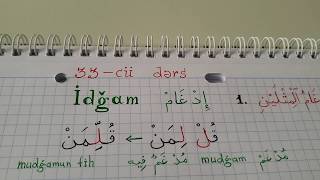 33-cü dərs
İdğam إِدْغَامْ 1. غَامُ الْمِثْلَيْنِ
قُلْ لِمَنْ ← قُلِّمَنْ
mudğamun fih مُدْغَمٌ فِيهِ mudğam مُدْغَمْ